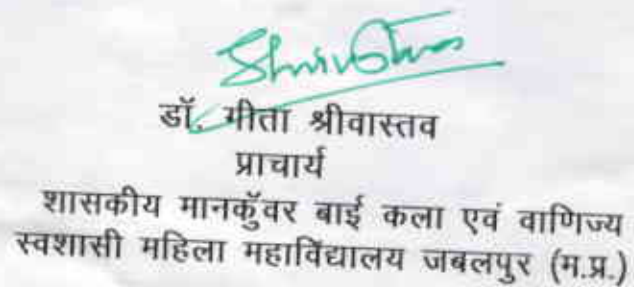 डॉ. गीता श्रीवास्तव
प्राचार्य
शासकीय मानकुॅवर बाई कला एवं वाणिज्य
स्वशासी महिला महाविद्यालय जबलपुर (म.प्र.)